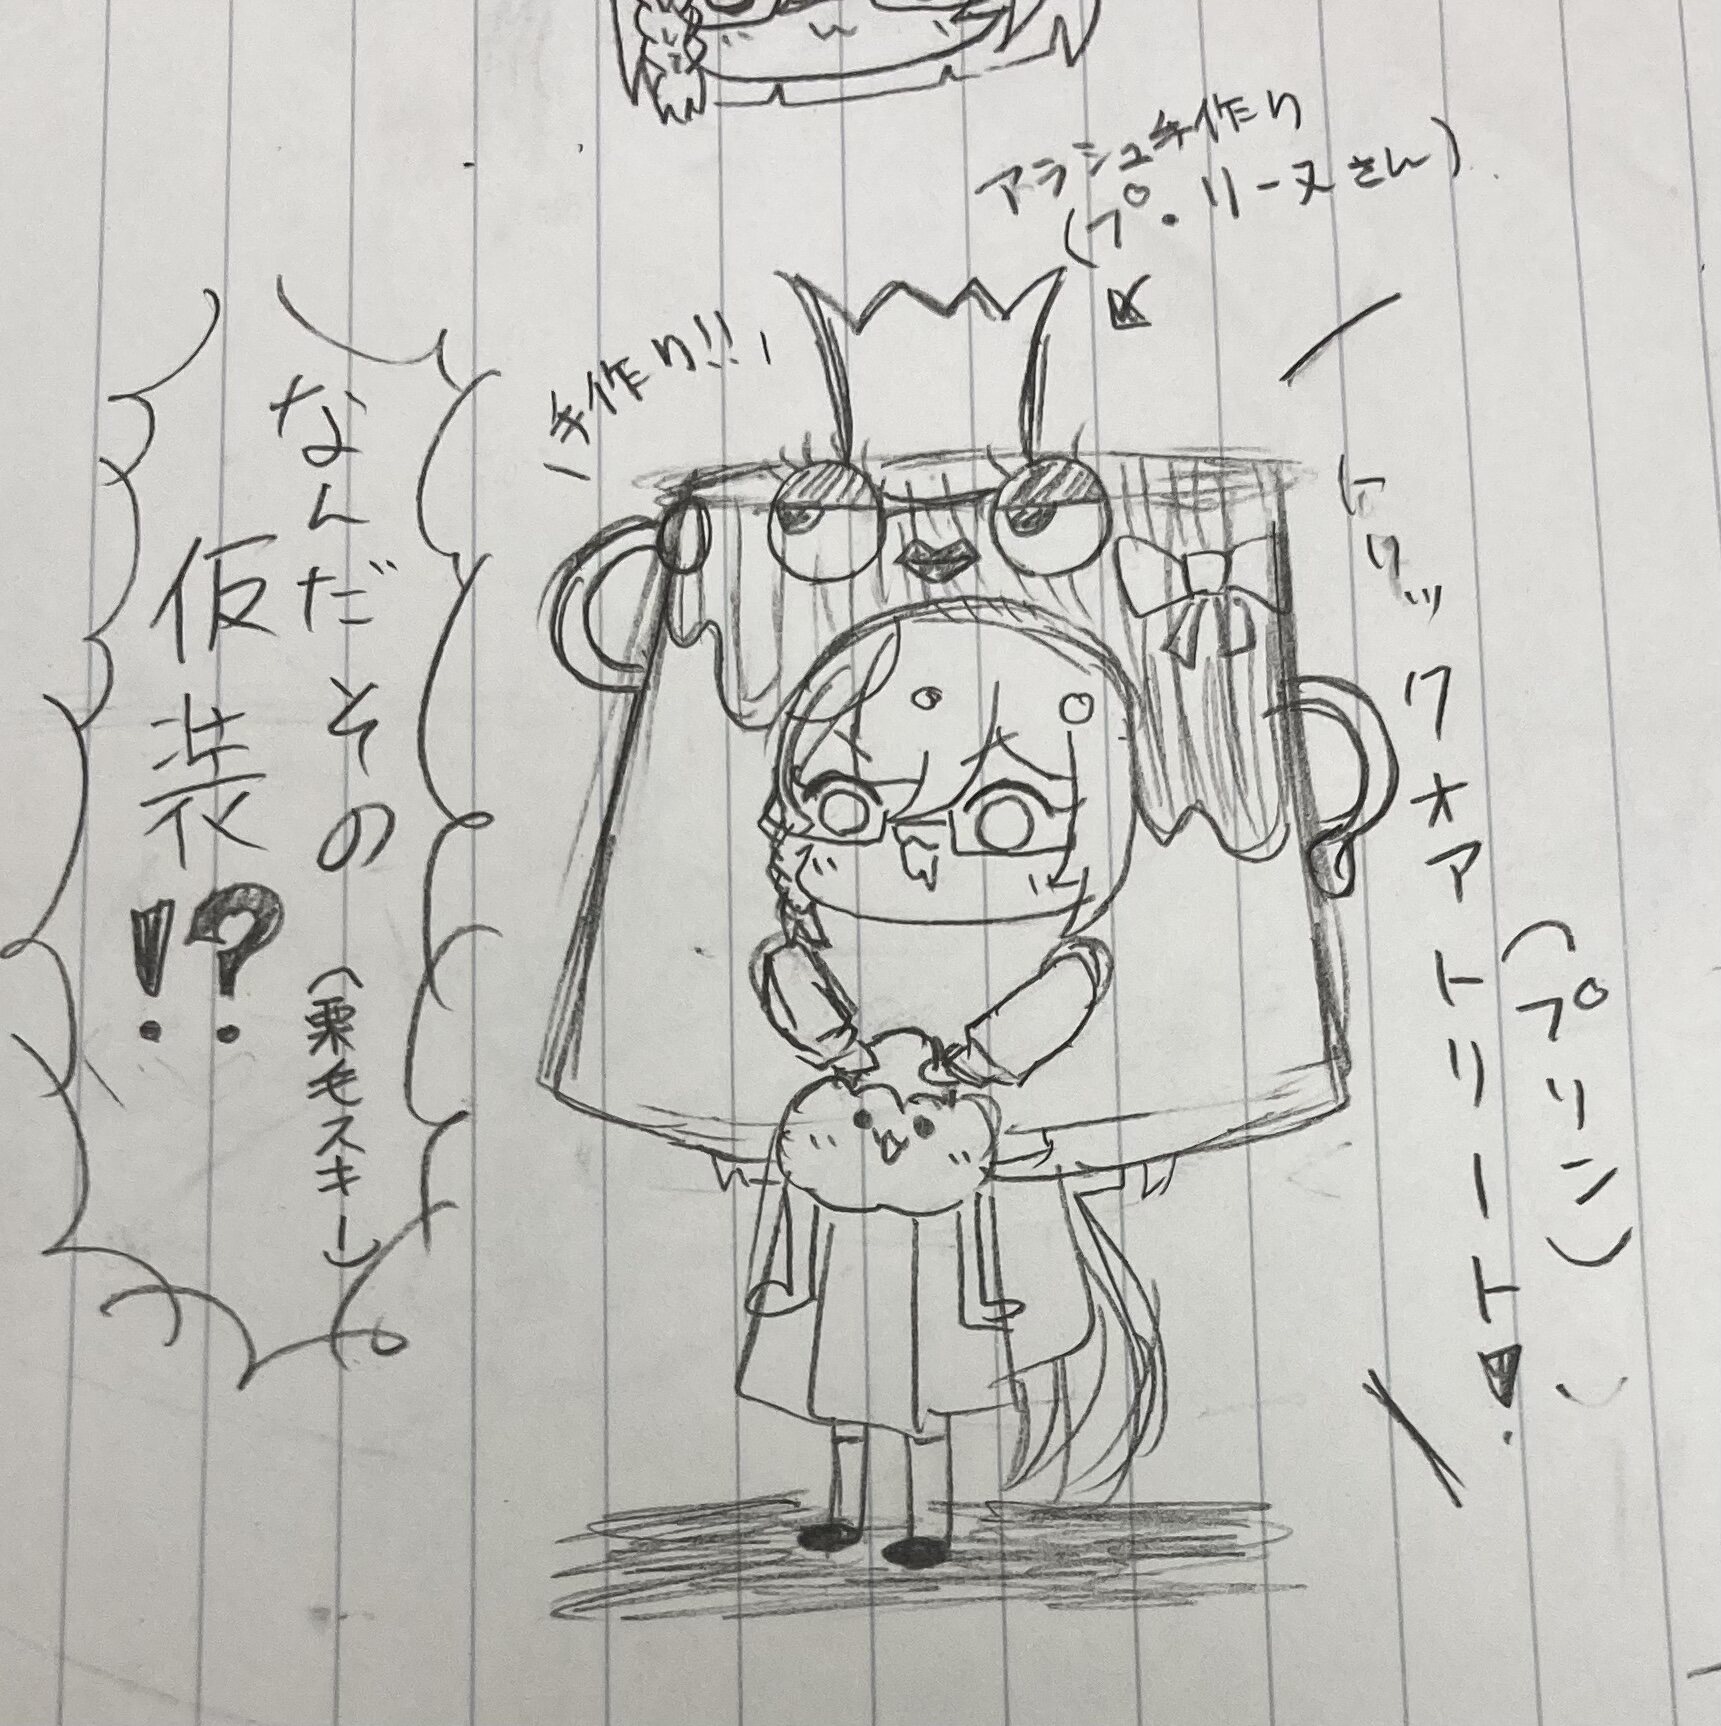 アラシュ手作り
(プ・リーヌさん)
手作り!!
トリックオアトリート♥
(プリン)
なんだその
仮装!?
(栗毛スキー)